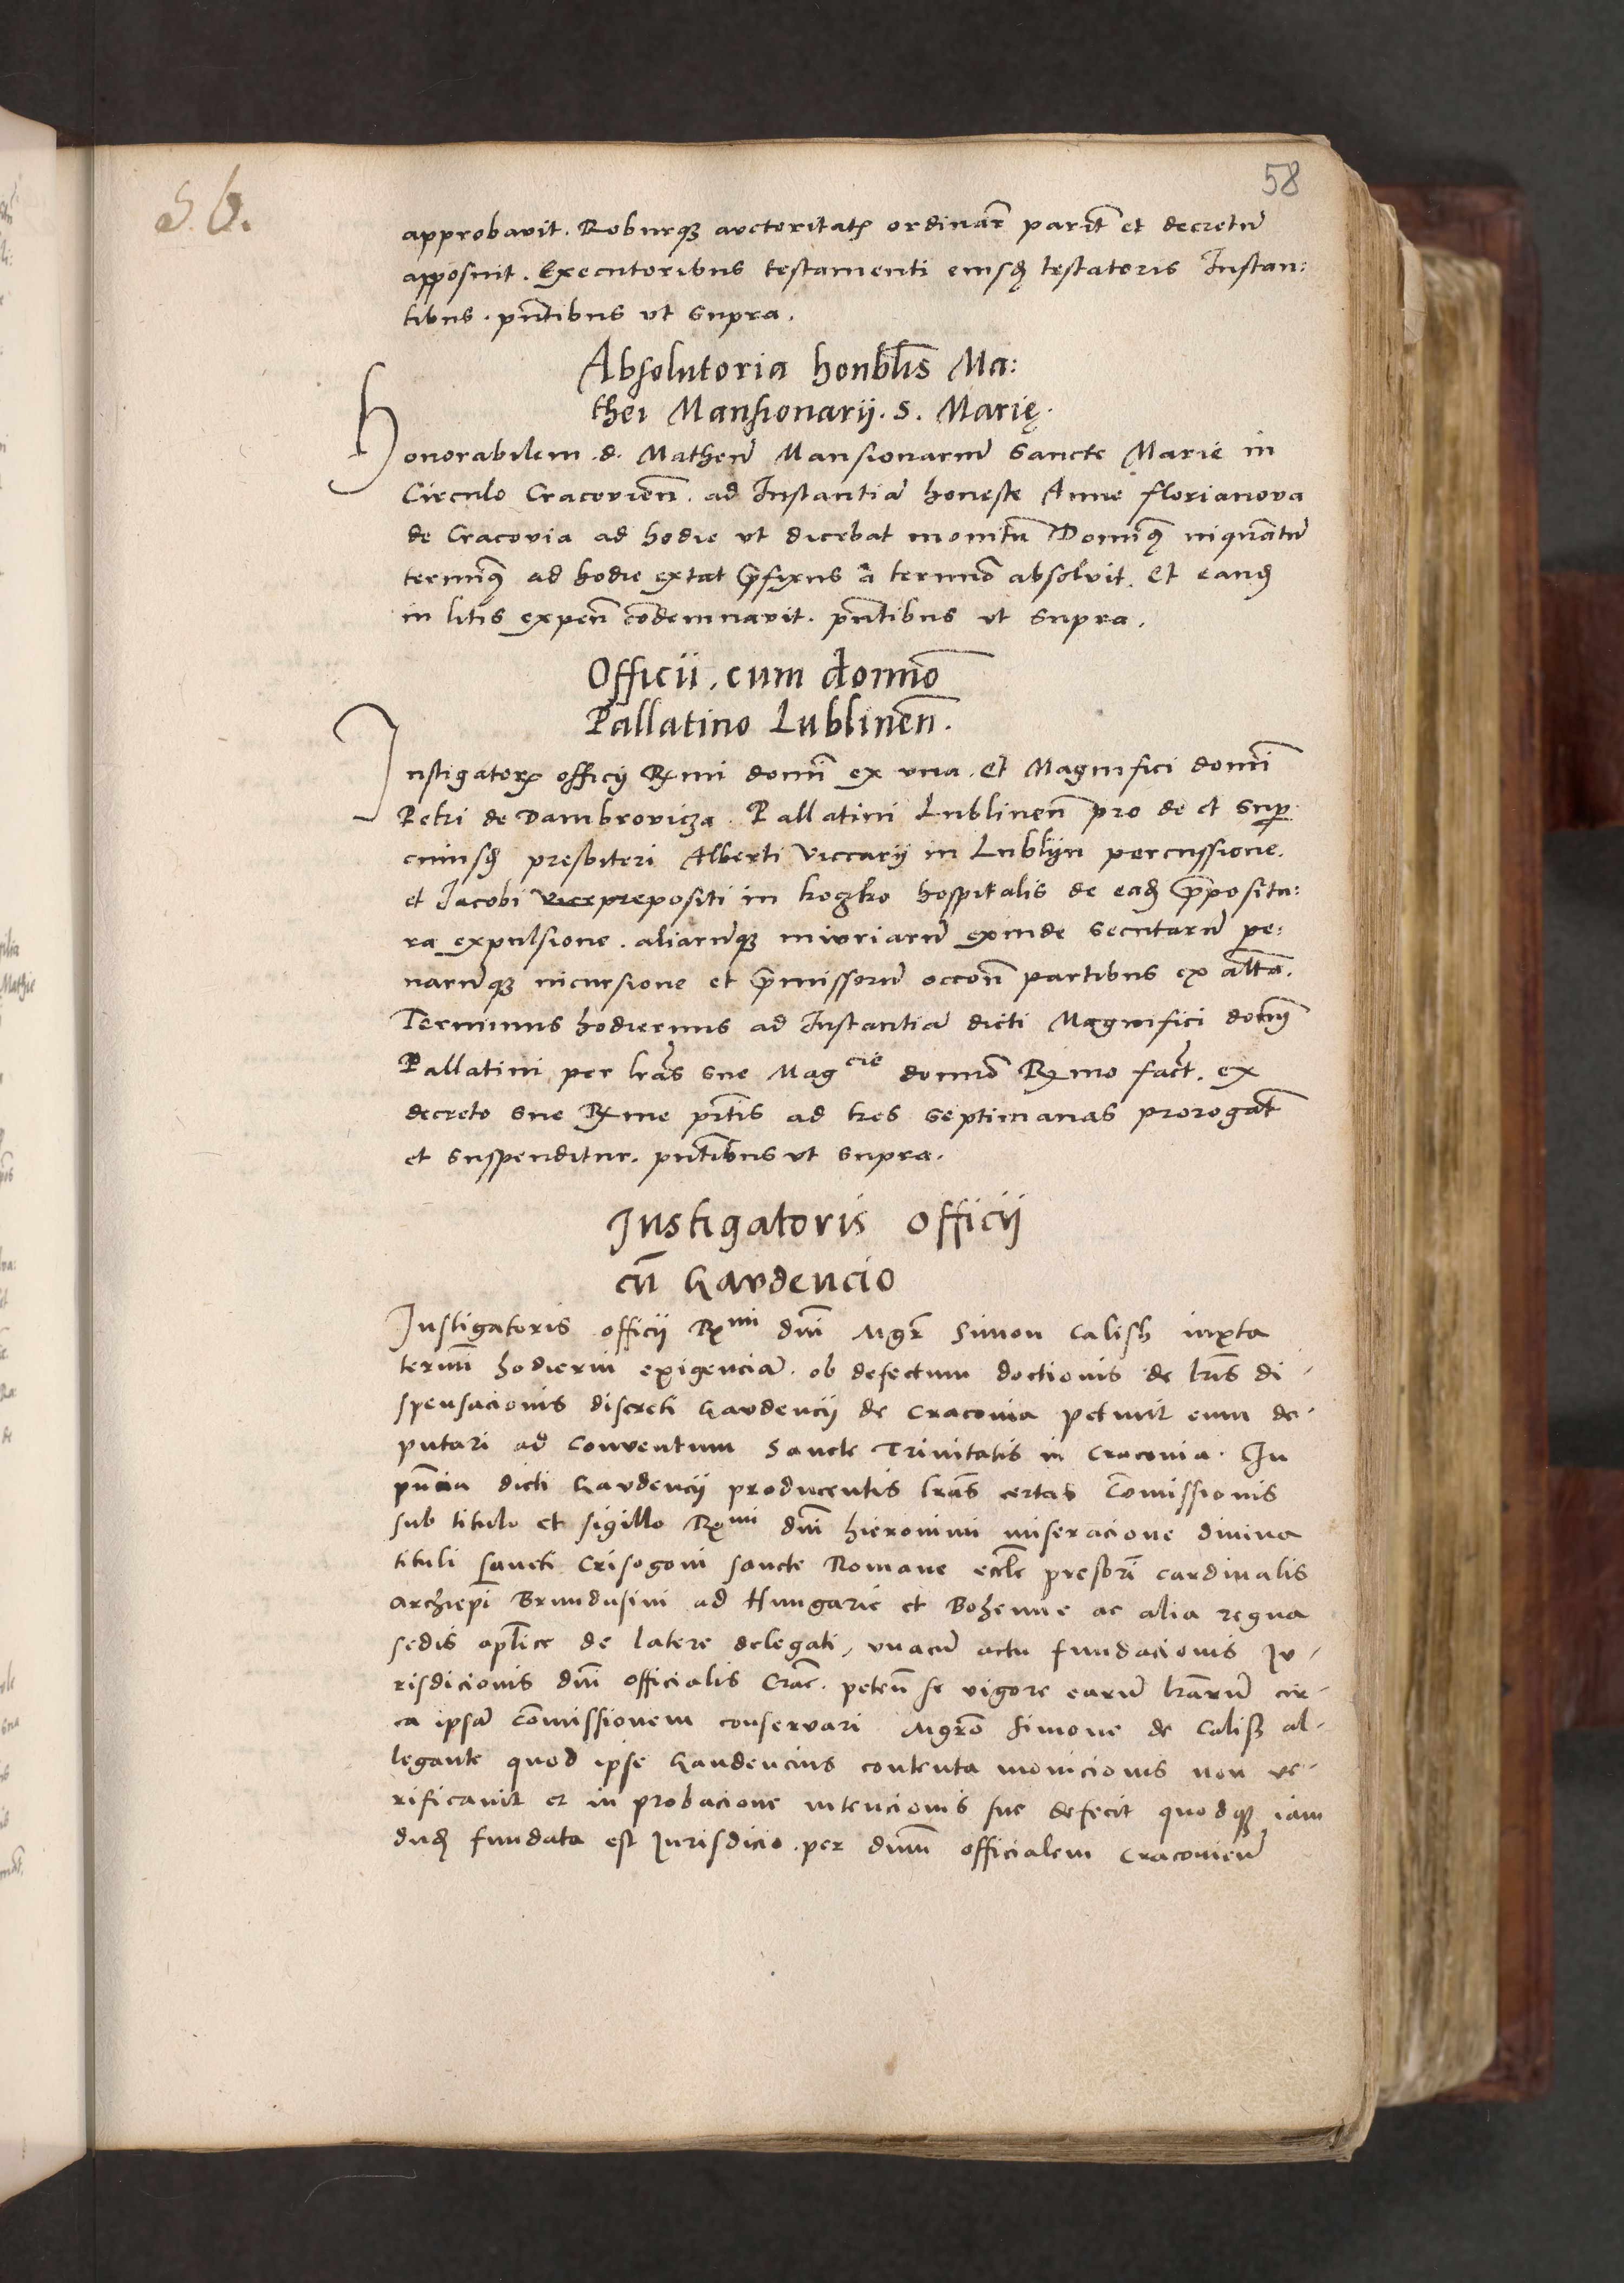 58
S. b.
approbavit. Roburq₃ auctoritatꝭ ordinar̄ parit̄ et decretū
apposuit. Executoribus testamenti eiusdꝫ testatoris Instan:
tibus. pn̄tibus ut supra.
Absolutoria honbl̄is Ma:
thei Mansionarij. S. Marię.
Honorabilem .d. Matheū Mansionariū Sancte Marie in
Circulo Cracovien̄. ad Instantiā honeste Anne florianova
de Cracovia ad hodie ut dicebat monitū Dominꝫ inquātū
terminꝫ ad hodie extat p̄fixus a termīo absolvit. Et eandꝫ
in litis expen̄ cōdemnavit. pn̄tibus ut supra.
Officii. cum domīo
Pallatino Lublinen̄.
Instigatorꝭ officij Rx̄mi domī ex una. Et Magnifici domī
Petri de Dambrovicza. Pallatini Lublinen̄ pro de et sup
cuiusdꝫ presbiteri Alberti Viccarij in Lublijn percussione.
et Jacobi prepositi in koczko hospitalis de eadꝫ p̄positu:
ra expulsione. aliarūq₃ iniuriarū exinde secutarū pe:
narūq₃ incursione et p̄missorū occon̄ partibus ex alt̄a.
Terminus hodiernus ad Instantiā dicti Magnifici domī
Pallatini per lr̄as sue Magcie domīo Rx̄mo fact̄. ex
decreto sue Rx̄me pn̄tis ad tres septimanas prorogat̄
et suspenditur. pn̄tibus ut supra.
Instigatoris officij
cū Gaudencio
Instigatoris officii Rxmi dn̄i Mgr̄ Simon Calish iuxta
termī hodierni exigenciā. ob defectum doctionis de lr̄is di-
spensacionis discreti Gaudencij de Cracovia petiuit eum de-
putari ad Conventum Sancte Trinitatis in Cracovia. In
pn̄cia dicti Gaudencij producentis lr̄as certas Cōmissionis
sub titulo et sigillo Rxmi dn̄i hieronimi miseracione divina
tituli Sancti Crisogoni sancte Romane eccl̄e presbrī cardinalis
archiepī Brundusini ad Hungarie et Bohemie ac alia regna
sedis apl̄ice de latere delegati, unacū actu fundacionis Ju-
risdicionis dn̄i officialis Crac̄. peten̄ se vigore earū lr̄arū cir-
ca ipsā Cōmissionem conservari Mgrō Simone de Calish al-
legante quod ipse Gaudencius contenta monicionis non ve-
rificavit et in probacione intencionis sue defecit quodq₃ iam
dudꝫ fundata est Jurisdicio. per dn̄m officialem Cracovien̄